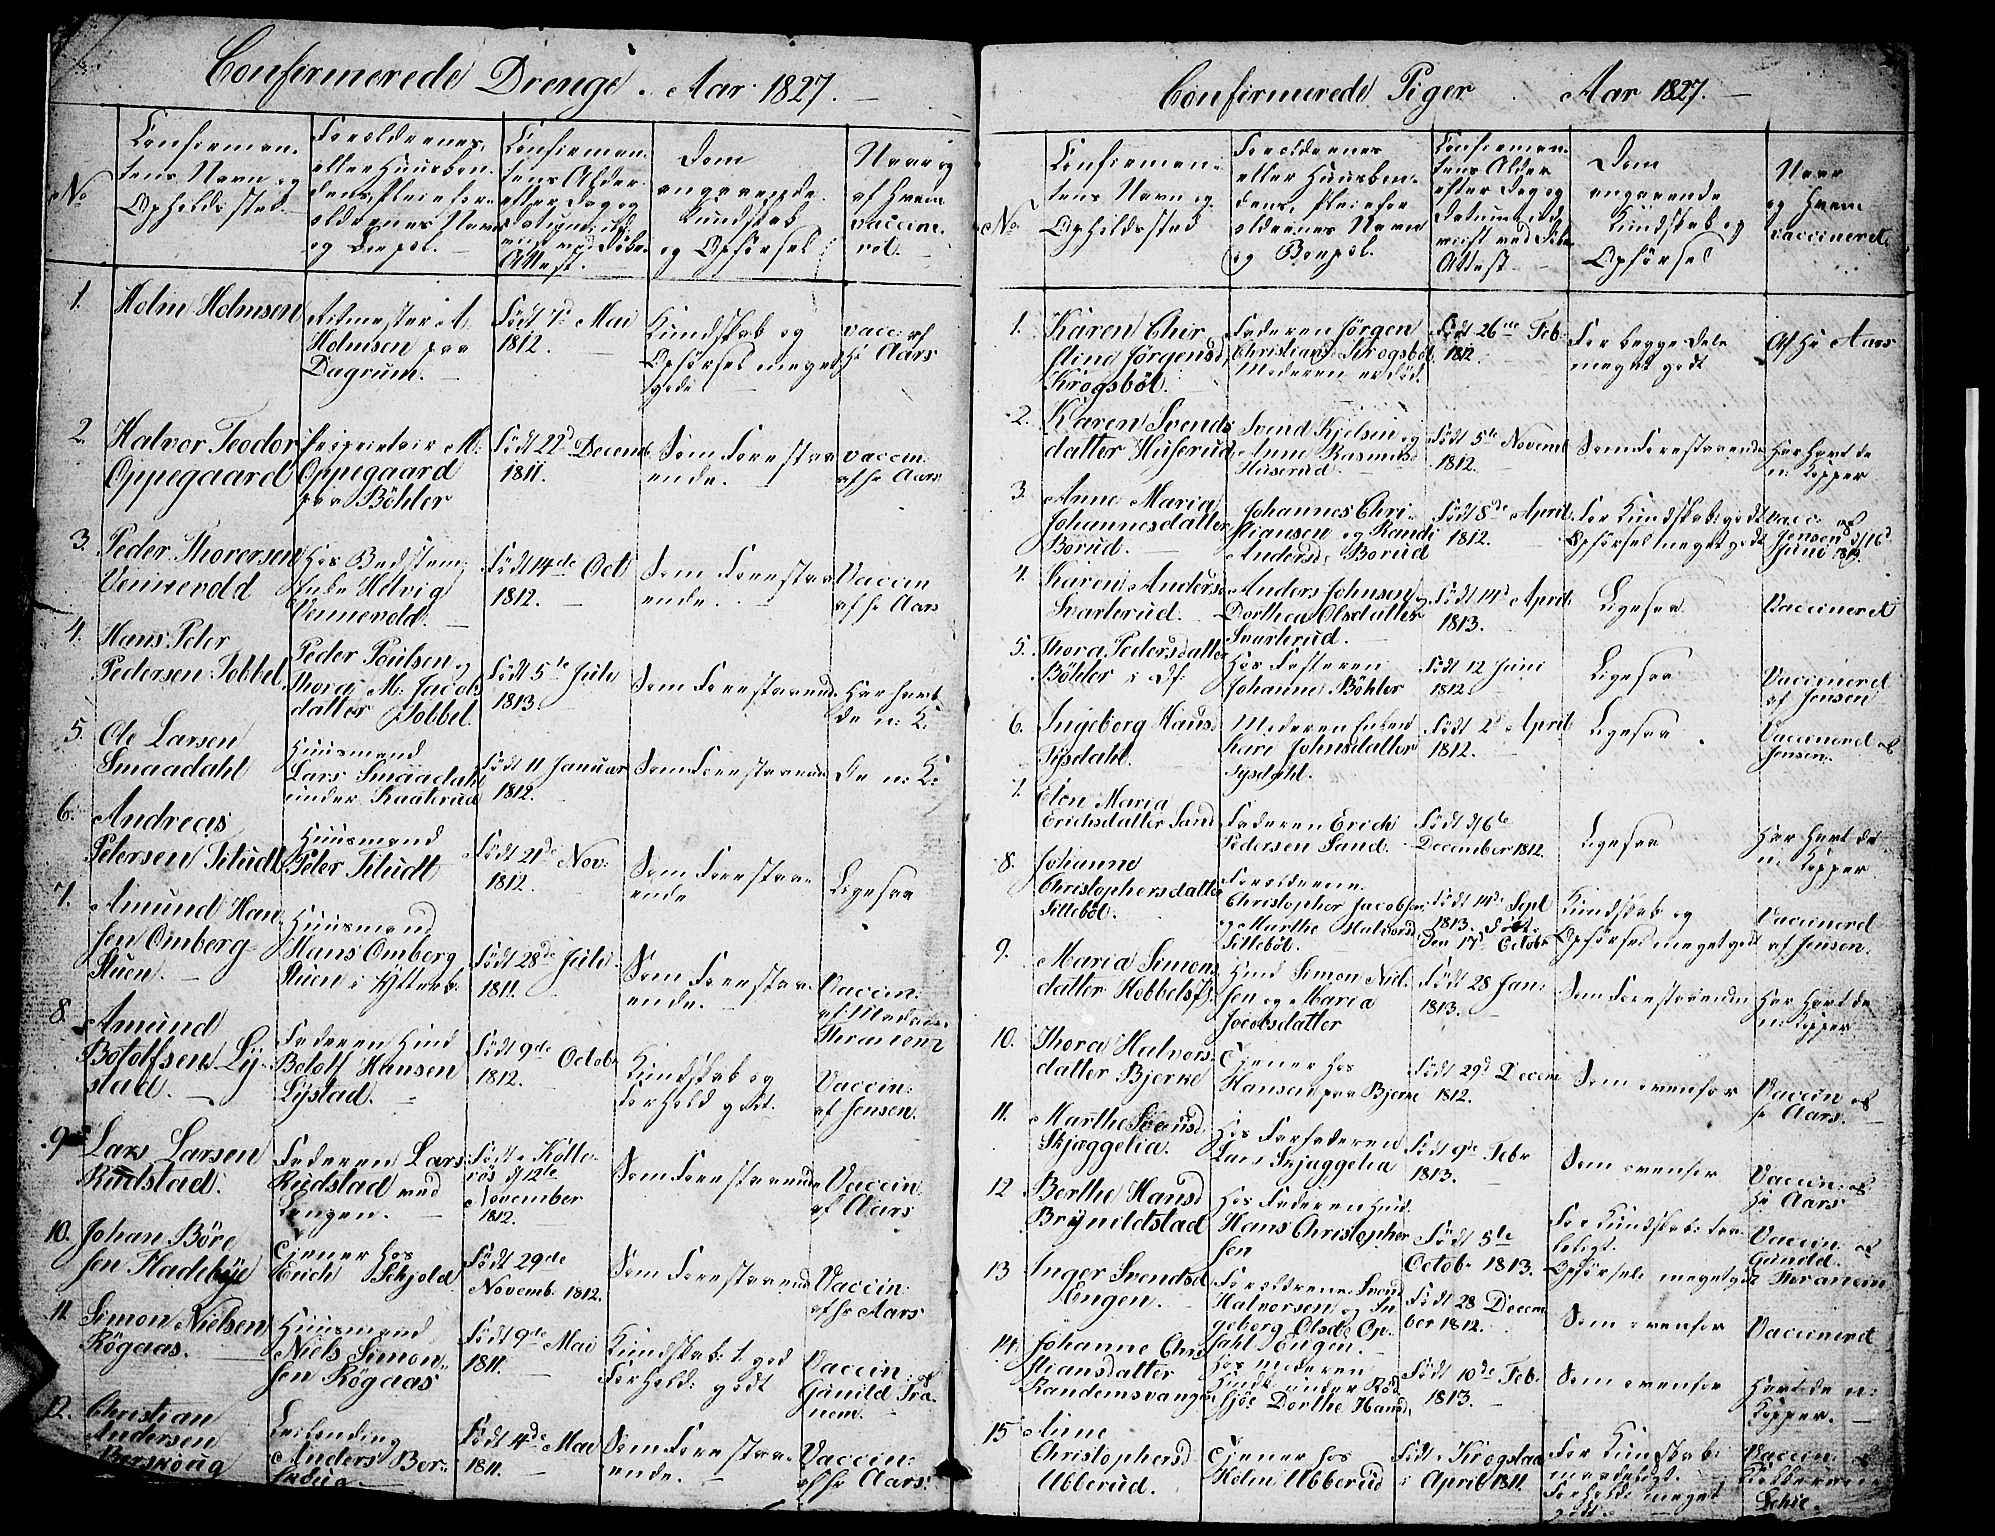 Confirmerede Drenge. Aar 1827.
No
Confirman-
tens Navn og
Opholdssted
Foreldrenes,
eller Huusbon-
dens, Pleiefor-
eldrenes Navn
og Boepæl.
Confirman-
tens Alder
efter Dag og
Datum, ud-
viist ved Døbe-
Attest.
Dom
angaaende
Kundskab
og Opførsel
Naar og
af Hvem
vaccine-
ret.
1.
Holm Holmsen
Ritmester A.
Holmsen paa
Dagrum.
Født 7de Mai
1812.
Kundskab og
Opførsel meget
gode
vacc: af
Hr Aars
2.
Halvor Teodor
Oppegaard
Proprietair M:
Oppegaard
paa Böhler
Født 22d Decemb.
1811.
Som Forestaa-
ende.
vaccin.
af Hr Aars
3.
Peder Thorersen
Vennevold
Hos Bedstem:
Enke Helvig
Vennevold.
Født 14de Oct
1812.
Som Forestaa-
ende.
Vaccin
af Hr Aars
4.
Hans Peter
Pedersen Sobbel
Peder Poulsen og
Thora M: Jacobs
datter Sobbel
Født 5te Juli
1813.
Som Forestaaende
Har havt
de n: K.
5.
Ole Larsen
Smaadahl
Huusmand
Lars Smaadahl
under Kaaterud
Født 11 Januar
1812.
Som Forestaaende
De n: K:
6.
Andreas
Petersen Titudt
Huusmand
Peter Titudt
Født 21de Nov:
1812.
Som Forestaa-
ende
Ligesaa
7.
Amund Han-
sen Omberg-
stuen.
Huusmand
Hans Omberg
stuen i
Født 28de Juli
1811.
Som Forestaa-
ende.
Vaccin:
af Madam
Thranem
8.
Amund
Botolfsen Ly-
stad.
Faderen Huusd
Botolf Hansen
Lystad.
Født 9de Octob:
1812.
Kundskab og
Forhold godt.
Vaccin:
af Jensen.
9
Lars Larsen
Rudstad.
Faderen Lars
Rudstad ved
Længen.
Født i
d 12te
November
1812.
Som Forestaaende
Vaccin
af Aars
10.
Johan Böre
sen Fladebye
Tjener hos
Erich Schjold
Født 29de
Novemb. 1812.
Som Forestaaende
Vaccin:
af Hr Aars
11.
Simon Nielsen
Rögaas.
Huusmand
Niels Simon-
sen Rögaas
Født 9de Mai
1811.
Kundskab: t. god
Forhold: godt
Vaccin: af
Gunild Tra
nem.
12.
Christian
Andersen
Leilending
Anders Ber-
Født 4de Mai
1811.
Som Forestaa-
ende.
Vaccin:
af Hr Aars.
Confirmerede Piger. Aar 1827.
No
Confirman-
tens Navn og
Opholdssted
Foreldrenes
eller Huusbon-
dens, Pleiefor
eldrenes Navn
og Boepæl.
Confirman-
tens Alder
efter Dag og
Datum, ud-
viist ved Døbe
Attest
Dom
angaaende
Kundskab og
Opførsel
Naar
og Hvem
vaccineret
1.
Karen Chir
stine Jörgensd
Krogsböl.
Faderen Jørgen
Christians Krogsböl
Moderen er död.
Født 26de Feb:
1812.
For begge Dele
meget godt
Af Hr Aars
2.
Karen Svends
datter Huserud
Svend Kjelsen og
Anne Rasmusd
Huserud.
Født 5te Novemb
1812.
Som Forestaaende
Har havt de
n: Kopper
3.
Anne Maria
Johannesdatter
Borud.
Johannes Chri-
stiansen og Randi
Andersd: Borud
Født 8de April
1812.
For Kundskab: godt
Opførsel meget godt
Vacc: af
Jensen d/16d
Juni 1812.
4.
Karen Anders
Svarterud.
Anders Johnsen og
Dorthea Olsdatter
Svarterud.
Født 14d April
1813.
Ligesaa
Vaccineret
5.
Thora Pedersdatter
Böhler i
Hos Fosteren
Johanne Böhler
Født 12 Juni
1812.
Ligesaa
Vaccinerd
af Jensen
6.
Ingeborg Hans
Tysdahl.
Moderen Enken
Kari Johnsdatter
Tysdahl.
Født 2d April
1812.
Ligesaa
Vaccinerd af
Jensen.
7.
Elen Maria
Erichsdatter Sand
Faderen Erich
Pedersen Sand.
Født d/6te
December 1812.
Ligesaa
Har Havt de
n: Kopper
8.
Johanne
Christophersdatter
Silleböl.
Foreldrene
Christopher Jacobsen
og Marthe Halvorsd
Silleböl.
Født 14d Sept
1813. Døbt
den 17d Octobr
Kundskab og
Opførsel meget godt
Vaccinerd
af Jensen.
9.
Maria Simons
datter Hobbels
Huusd Simon Niel-
sen og Maria
Jocobsdatter
Født 28 Jan:
1813.
Som Forestaaende
Har Havt de
n: Kopper
10.
Thora Halvors
datter Bjerke
Tjener hos
Hansen paa Bjerke
Født 29d Decem
1812.
Som ovenfor
Vaccin af
Hr Aars.
11.
Marthe
Skjæggelia.
Hos Farfaderen
Lars Skjæggelia
Født 9de Febr
1813.
Som ovenfor
Vaccin: af
Hr Aars
12
Berthe Hansd
Brynildstad
Hos Faderen Huusd.
Hans Christopher
sen
Født 5te
Octobr 1813.
For Kundskab: taa-
leligt.
Opførsel: meget godt
Vaccin: af
Gunild
Thranem
13
Inger Svendsd
Engen.
Foreldrene Svend
Halvorsen og In
geborg Olsd Op-
sahl Engen.
Født 28 Decem
ber 1812.
Som ovenfor
Vaccinerd
14
Johanne Chri
stiansdatter
Randemsvangen
Hos Moderen
Huusk: under Rød
sjöe Dorthe Hansd.
Født 10de Feb:
1813.
Som ovenfor
Havt de n:
Kopper.
15
Anne
Christophersd
Ubberud.
Tjener hos
Holm Ubberud
Født i Krogstad
i April 1811.
For Kundskab:
maadeligt.
Forhold: meget
godt.
Vaccin: af
Schie.